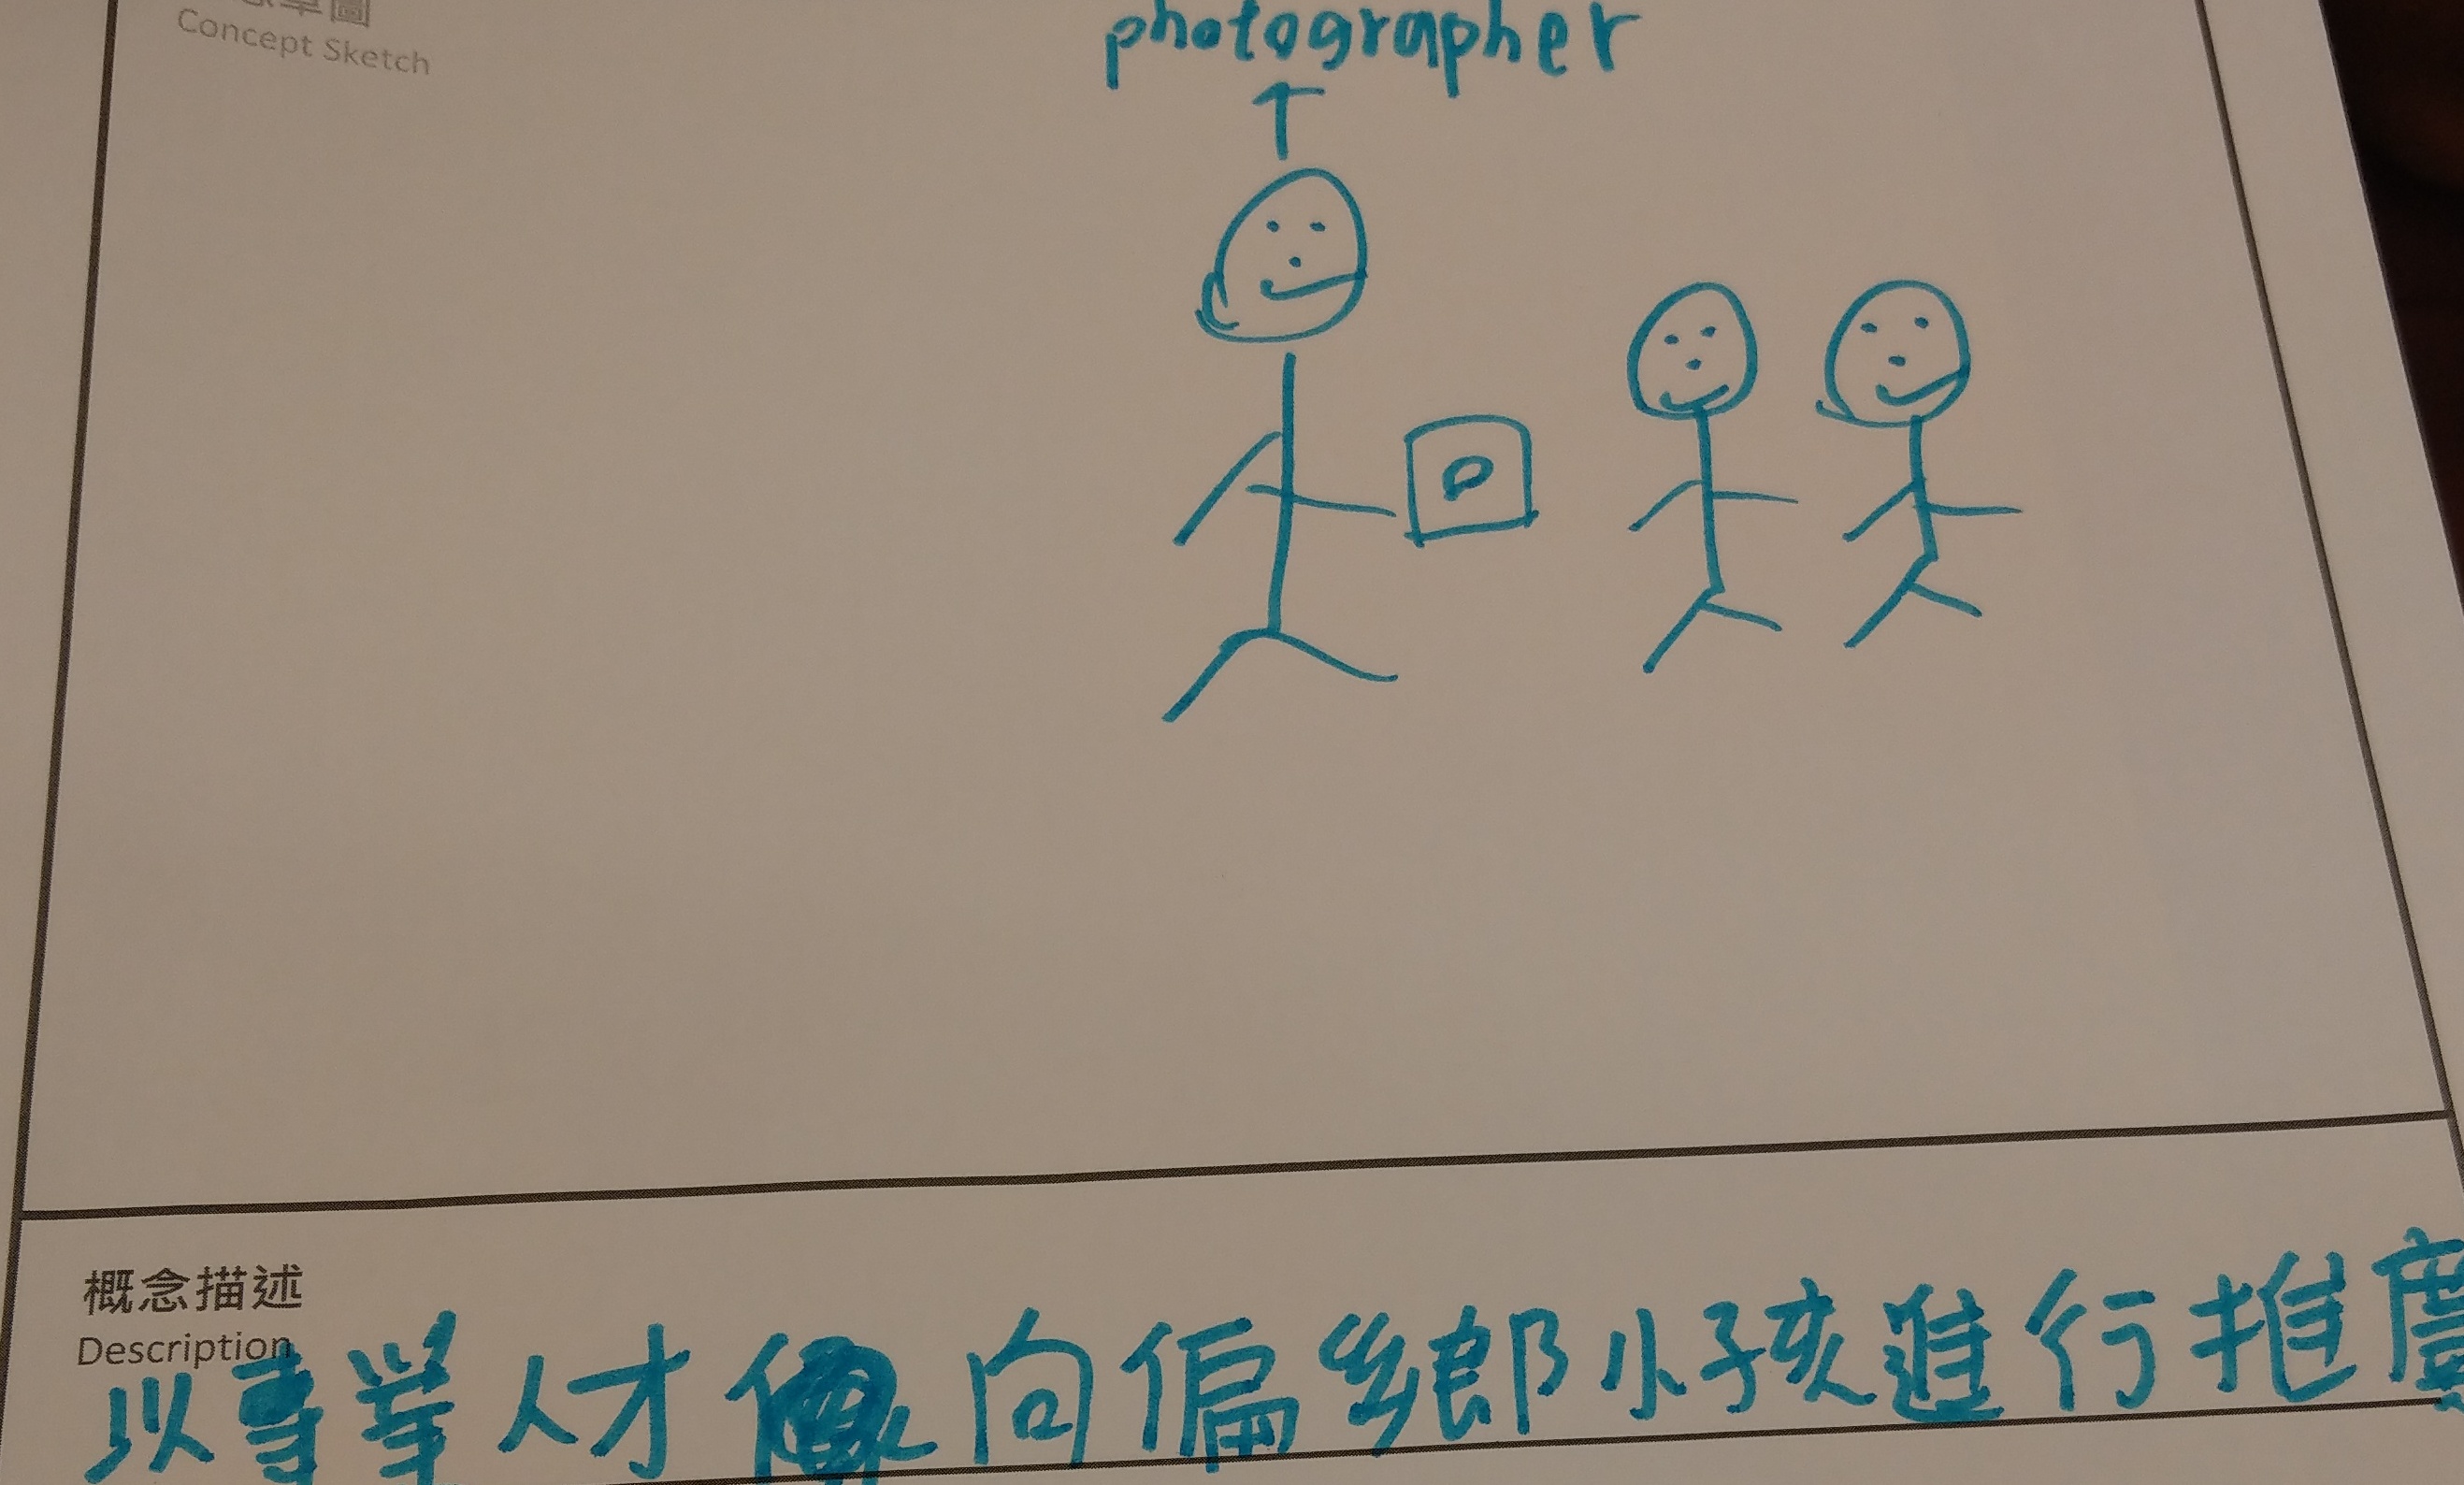 草圖
Concept Sketch
photographer
概念描述
Description
以專業人才向偏鄉小孩進行推廣